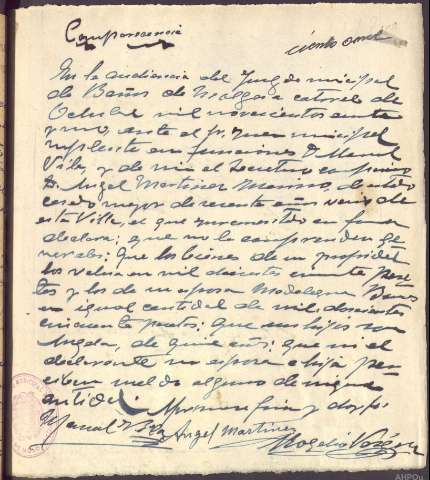 Comparecencia
ciento once
En la audiencia del Juzgdo municipal
de Baños de Molgas a catorce de
Octubre mil novecientos cuarenta
y uno, ante el Sr. Juez municipal
suplente en funciones D. Manuel
Vila, y de mi el Secretario comparecio
D. Angel Martinez
casado mayor de sesenta años vecino de
esta Villa, el que juramentado en forma
declara: que no le comprenden ge
nerales; Que los bienes de su propiedad
los valora en mil doscientas cincuenta pese
tas y los de su esposa Magdalena
en igual cantidad de mil doscientas
cincuenta pesetas; Que sus hijos son
que ni el
declarante ni esposa e hija per
ciben sueldo alguno de ninguna
entidad. Afirmase firma y doy fe.
Manuel Vila Angel Martinez
Rogelio
AHPOu